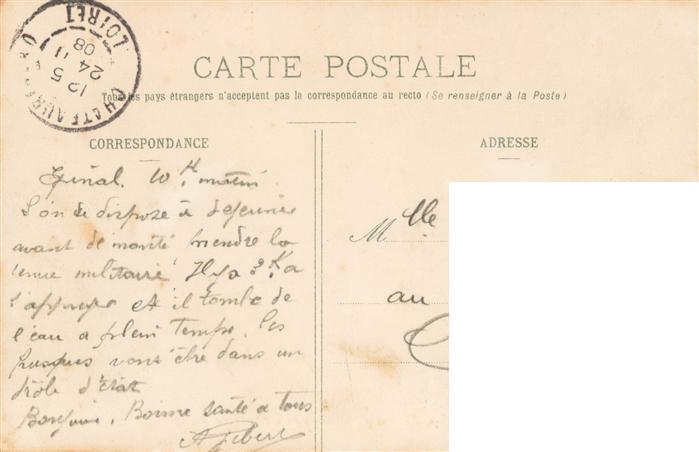 CHATEAURENARD
LOIRET
12 5
24 11
08
CARTE POSTALE
Tous les pays étrangers n'acceptent pas la correspondance au recto (Se renseigner à la Poste)
CORRESPONDANCE
ADRESSE
Epinal. 10 H. matin
L'on se dispose à dejeuner
avant de monté prendre la
tenue militaire Il y a 3 K a
et il tombe de
l'eau a plein temps. les
vont être dans un
drôle d'état
Bonjour. Bonne santé a tous
M lle
au